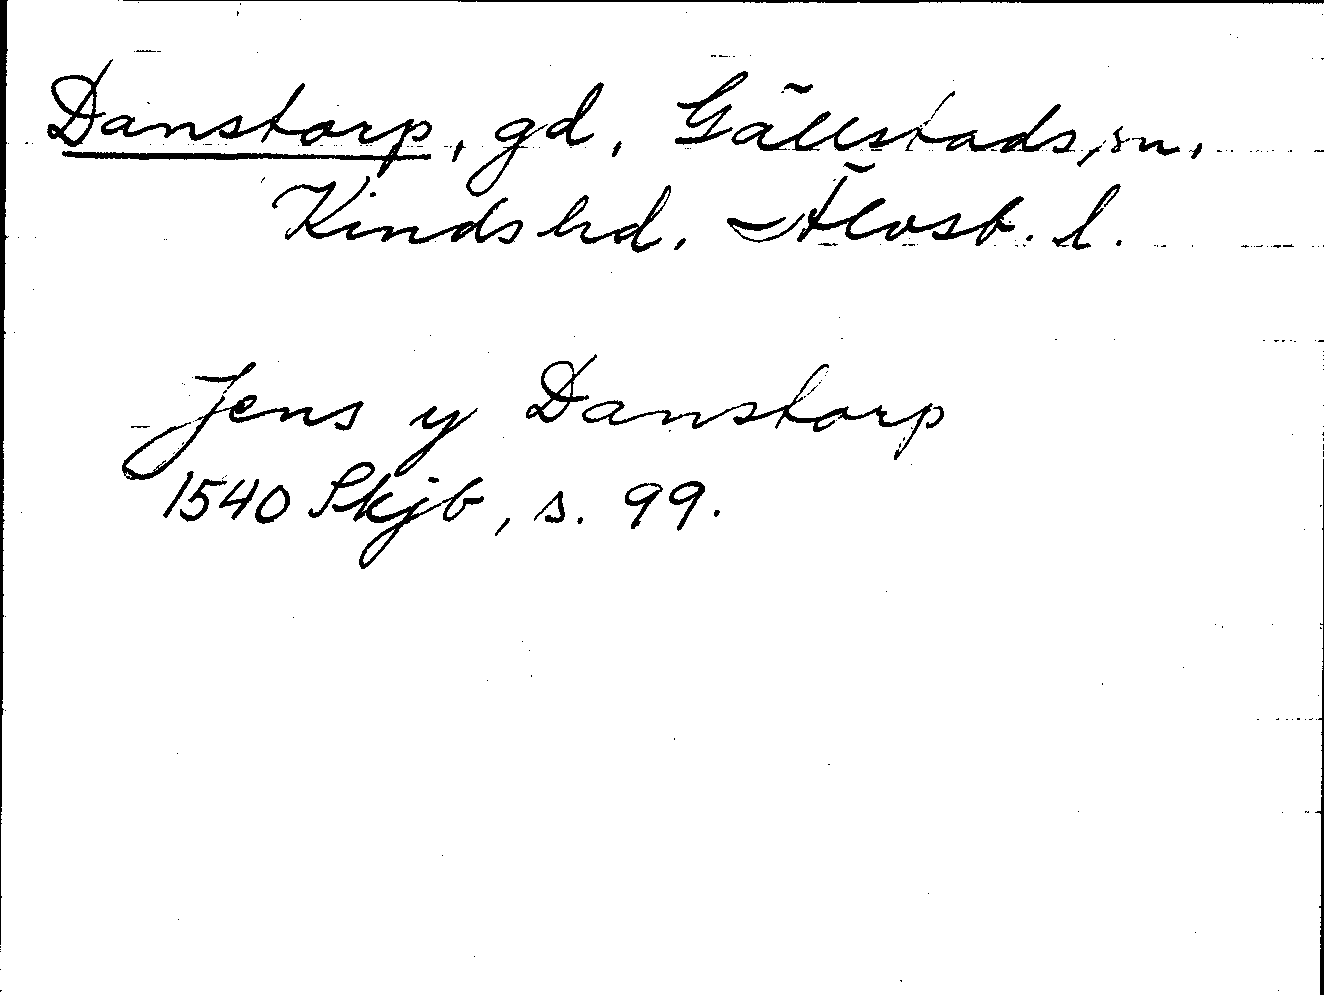 Danstorp, gd, Gällstads sn,
Kinds hd, Älvsb. l.
Jens y Danstorp
1540 Skjb, s. 99.